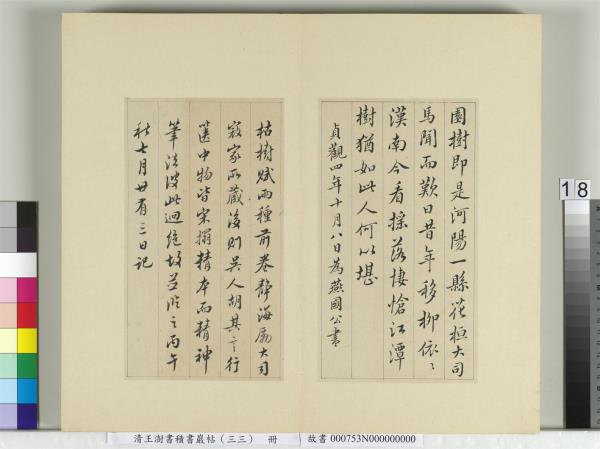 園樹即是河陽一縣花桓大司
馬聞而歎曰昔年移柳依〻
漢南今看搖落悽愴江潭
樹猶如此人何以堪
貞觀四年十月八日為燕國公書
枯樹賦兩種前卷靜海勵大司
寇家所藏後則吳人胡其之行
篋中物皆宋搨精本而精神
筆法彼此迴絕故並臨之丙午
秋七月廿有三日記
18
清王澍書積書巖帖(三三) 冊 故書 000753N000000000